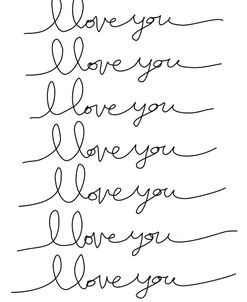 I love you
I love you
I love you
I love you
I love you
I love you
I love you